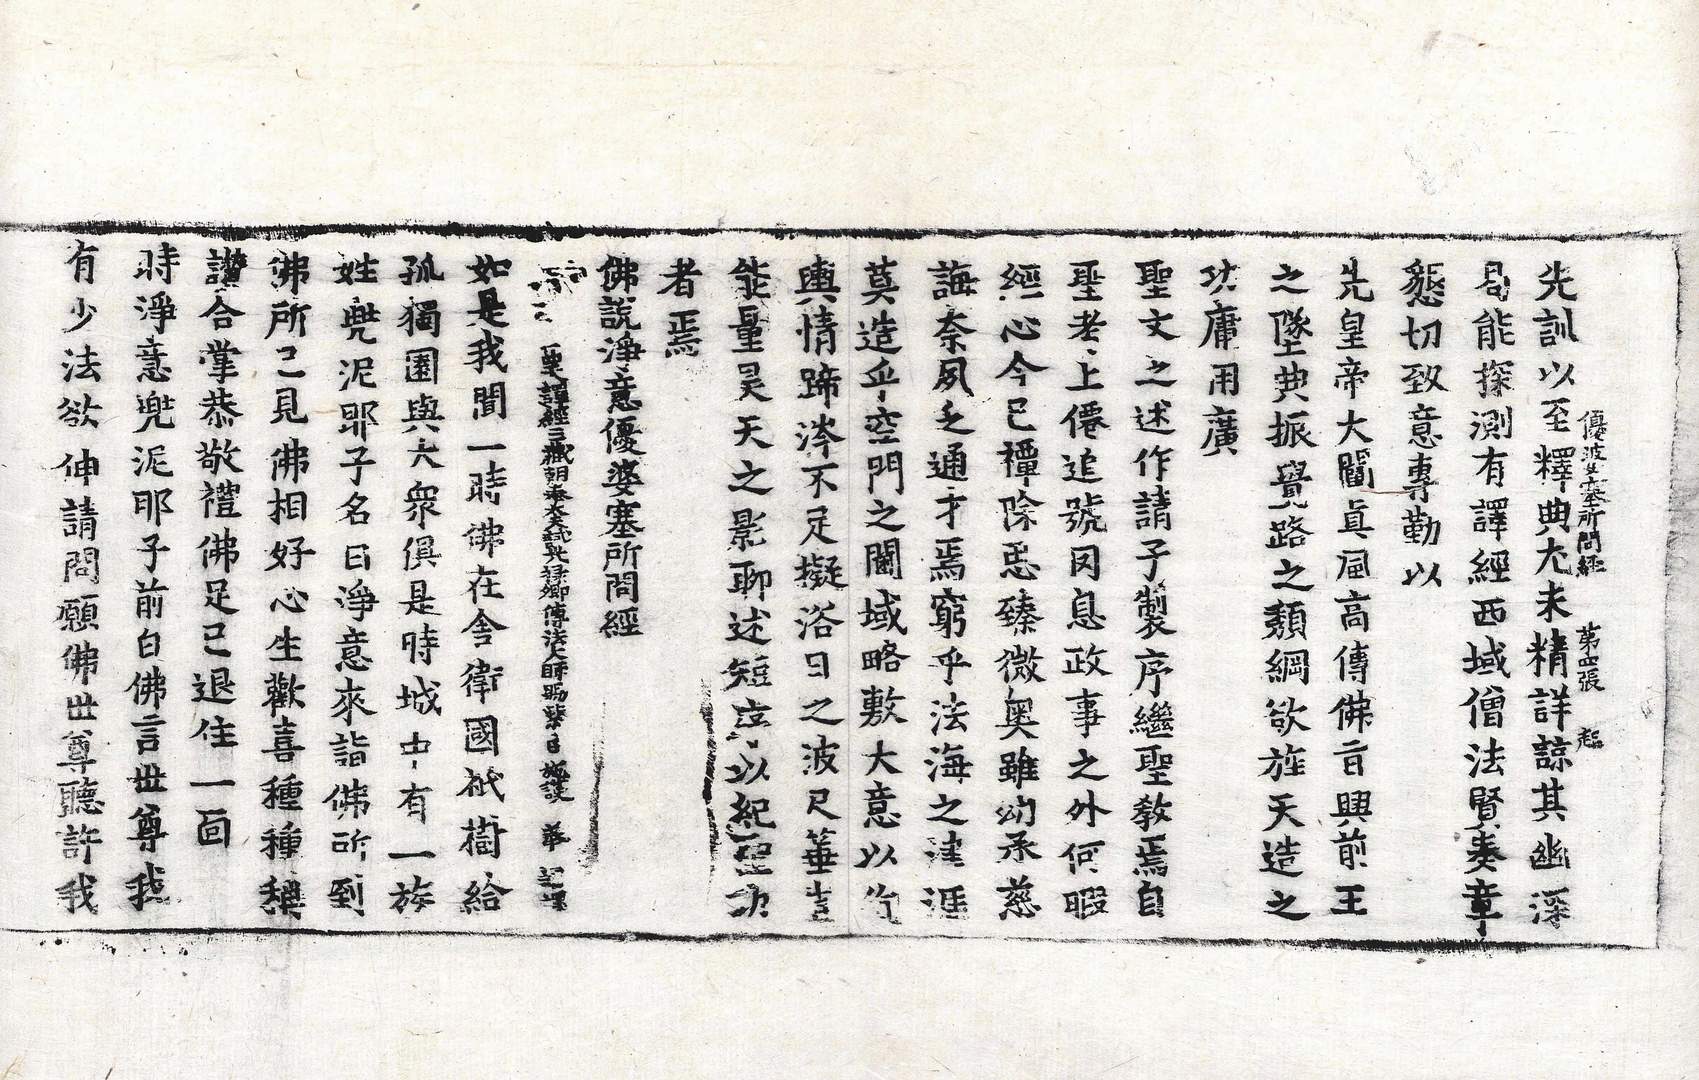 優波塞所問經 第四張 起
先訓以至釋典尤未精詳諒其幽深
曷能探測有譯經西域僧法賢奏章
懇切致意專勤以
先皇帝大闡眞風高傳佛旨興前王
之墜典振覺路之頹綱欲旌天造之
功庸用廣
聖文之述作請予製序繼聖教焉自
聖考上僊追號罔息政事之外何暇
經心今已禫除思臻微奧雖幼承慈
誨柰夙乏通才焉窮乎法海之津涯
莫造乎空門之閫域略敷大意以徇
輿情蹄涔不足擬浴日之波尺箠豈
能量昊天之影聊述短序以紀聖功
者焉
佛說淨意優婆塞所問經
譯經三藏朝奉大夫試光祿卿傳法大師賜紫臣施護奉 詔譯
如是我聞一時佛在舍衛國祇樹給
孤獨園與大衆俱是時城中有一族
姓兜泥耶子名曰淨意來詣佛所到
佛所已見佛相好心生歡喜種種稱
讚合掌恭敬禮佛足已退住一面
時淨意兜泥耶子前白佛言世尊我
有少法欲伸請問願佛世尊聽許我